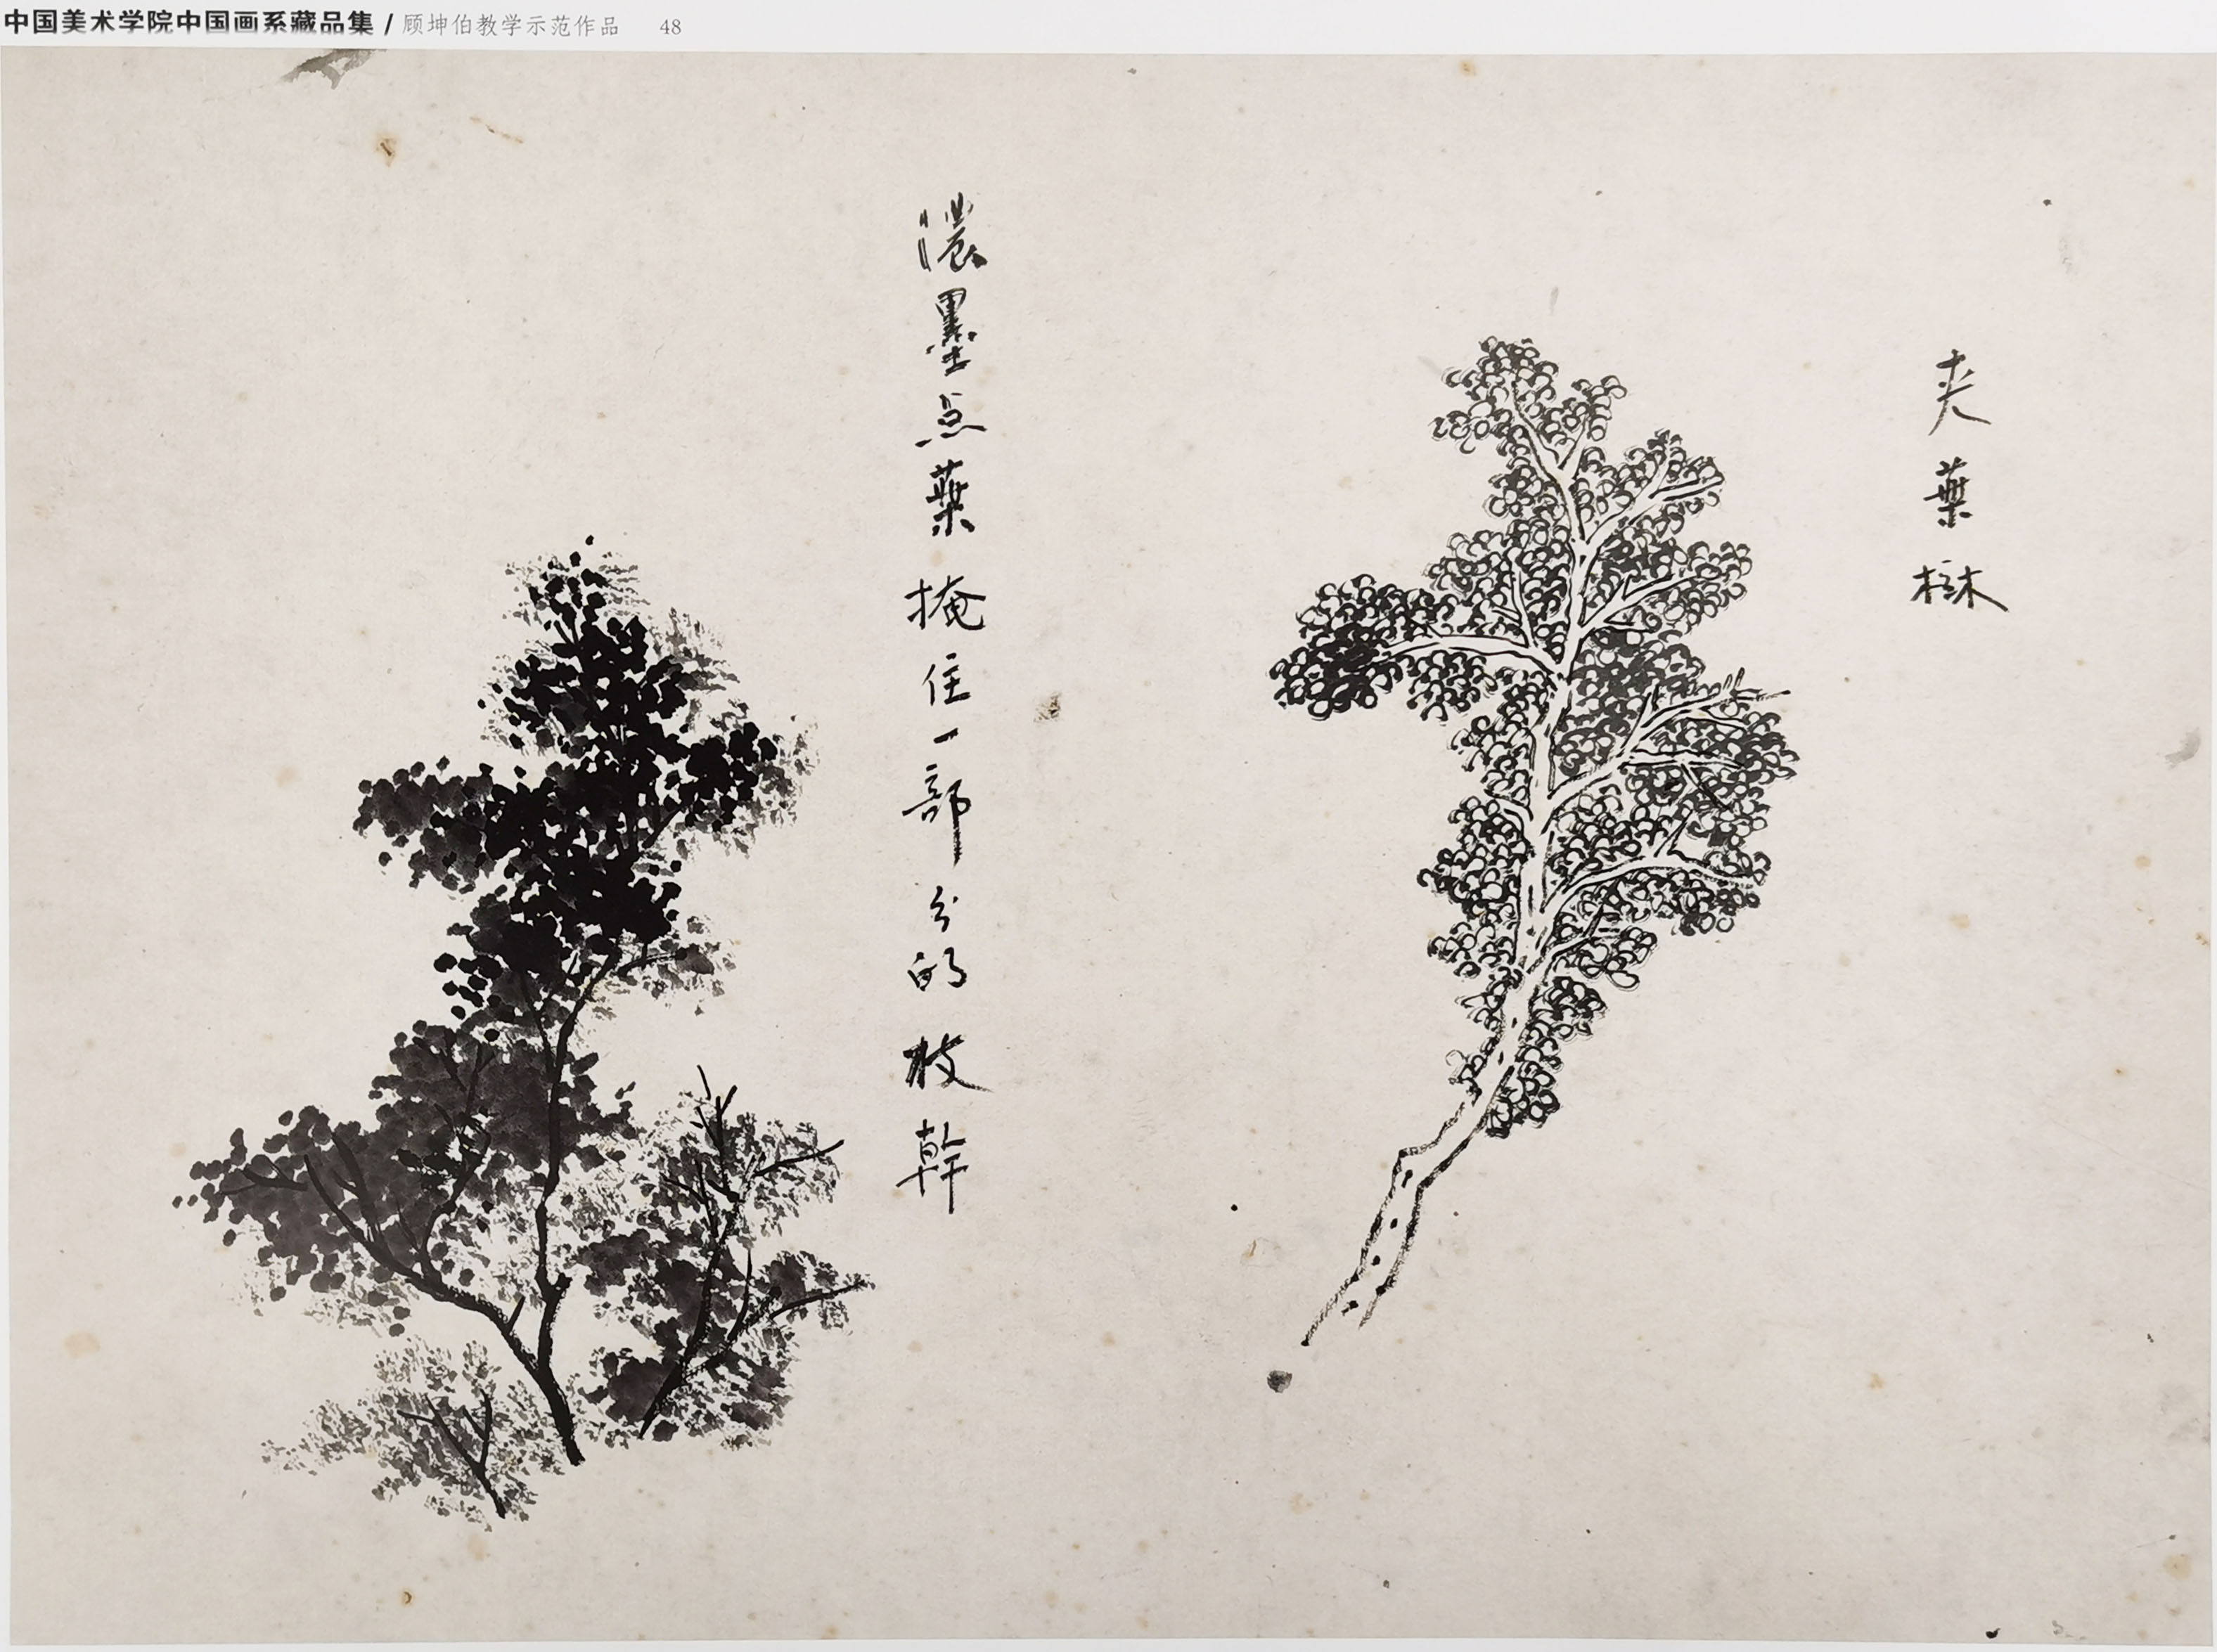 中国美术学院中国画系藏品集 / 顾坤伯教学示范作品 48
夹葉樹
濃墨点葉掩住一部分的枝幹